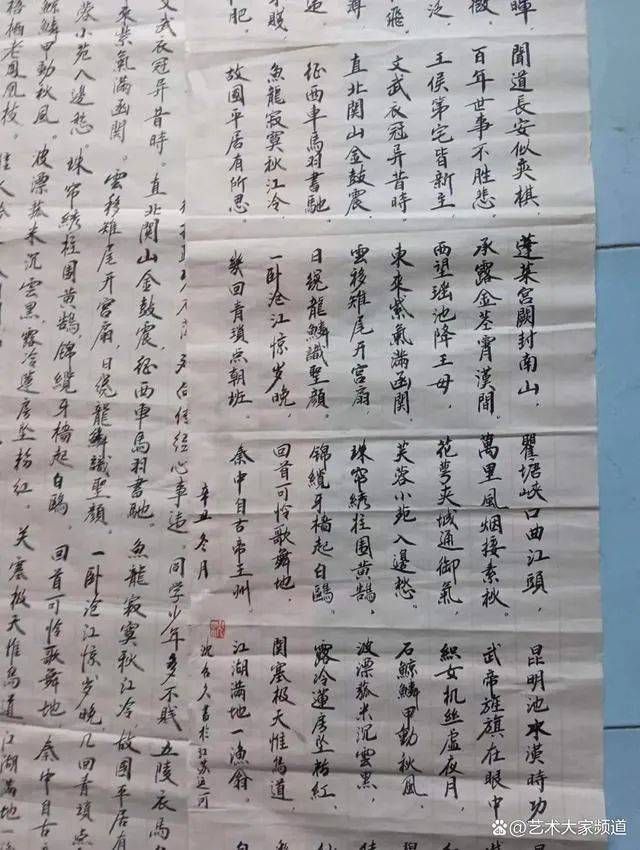 暉，
聞道長安似奕棋，
百年世事不勝悲。
王侯第宅皆新主，
文武衣冠异昔時。
直北関山金鼓震，
征西車馬羽書馳。
魚龍寂寞秋江冷，
故國平居有所思。
蓬莱宮闕封南山，
承露金莖霄漢間。
西望瑶池降王母，
東來紫氣滿函関。
雲移雉尾开宮扇，
日繞龍鱗識聖顔。
一卧沧江惊岁晚，
幾回青瑣点朝班。
瞿塘峡口曲江頭，
萬里風烟接素秋。
花萼夾城通御氣，
芙蓉小苑入邊愁。
珠帘綉柱围黄鵠，
錦纜牙檣起白鷗。
回首可怜歌舞地，
秦中自古帝王州。
昆明池水漢時功
武帝旌旗在眼中
織女机丝虚夜月，
石鯨鱗甲動秋風。
波漂菰米沉雲黑，
露冷蓮房坠粉紅。
関塞极天惟鳥道
江湖满地一漁翁。
辛丑冬月
書於江苏运河
心事違。同学少年多不賤 五陵衣馬
文武衣冠异昔時。直北関山金鼓震，征西車馬羽書馳。魚龍寂寞秋江冷 故國平居有
東來紫氣滿函関。雲移雉尾开宮扇，日繞龍鱗識聖顔。一卧沧江惊岁晚，几回青瑣点
蓉小苑入邊愁。珠帘綉柱围黄鵠，錦纜牙檣起白鷗。回首可怜歌舞地 秦中自古
鯨鱗甲動秋風。波漂菰米沉雲黑，露冷蓮房坠粉紅。関塞极天惟鳥道 江湖滿地一
栖老鳳凰枝。
@艺术大家频道